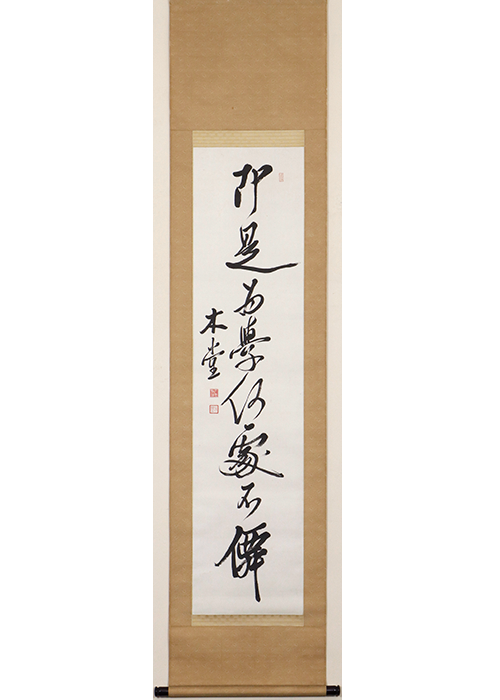 即是為學何處不僊
木堂